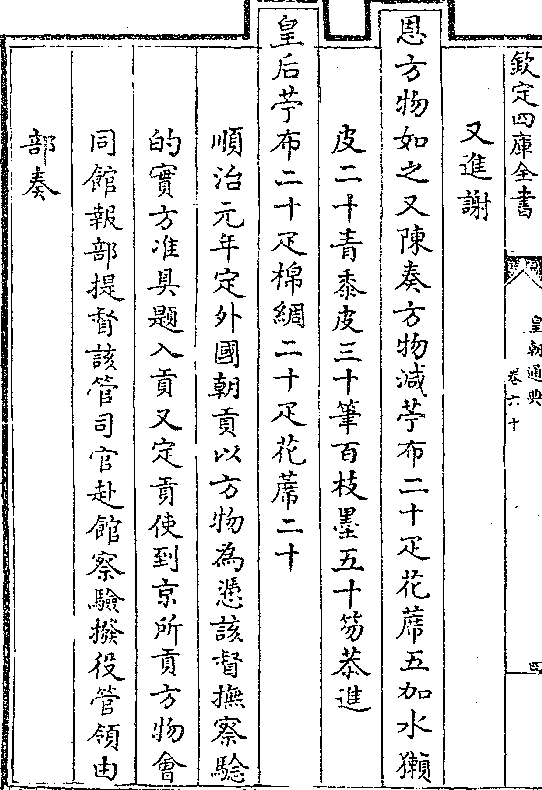 欽定四庫全書
皇朝通典
卷六十
四
又進謝
恩方物如之又陳奏方物減苧布二十疋花蓆五加水獺
皮二十青黍皮三十筆百枝墨五十笏恭進
皇后苧布二十疋棉綢二十疋花蓆二十
順治元年定外國朝貢以方物為憑該督撫察驗
的實方准具題入貢又定貢使到京所貢方物會
同館報部提督該管司官赴館察驗撥役管領由
部奏